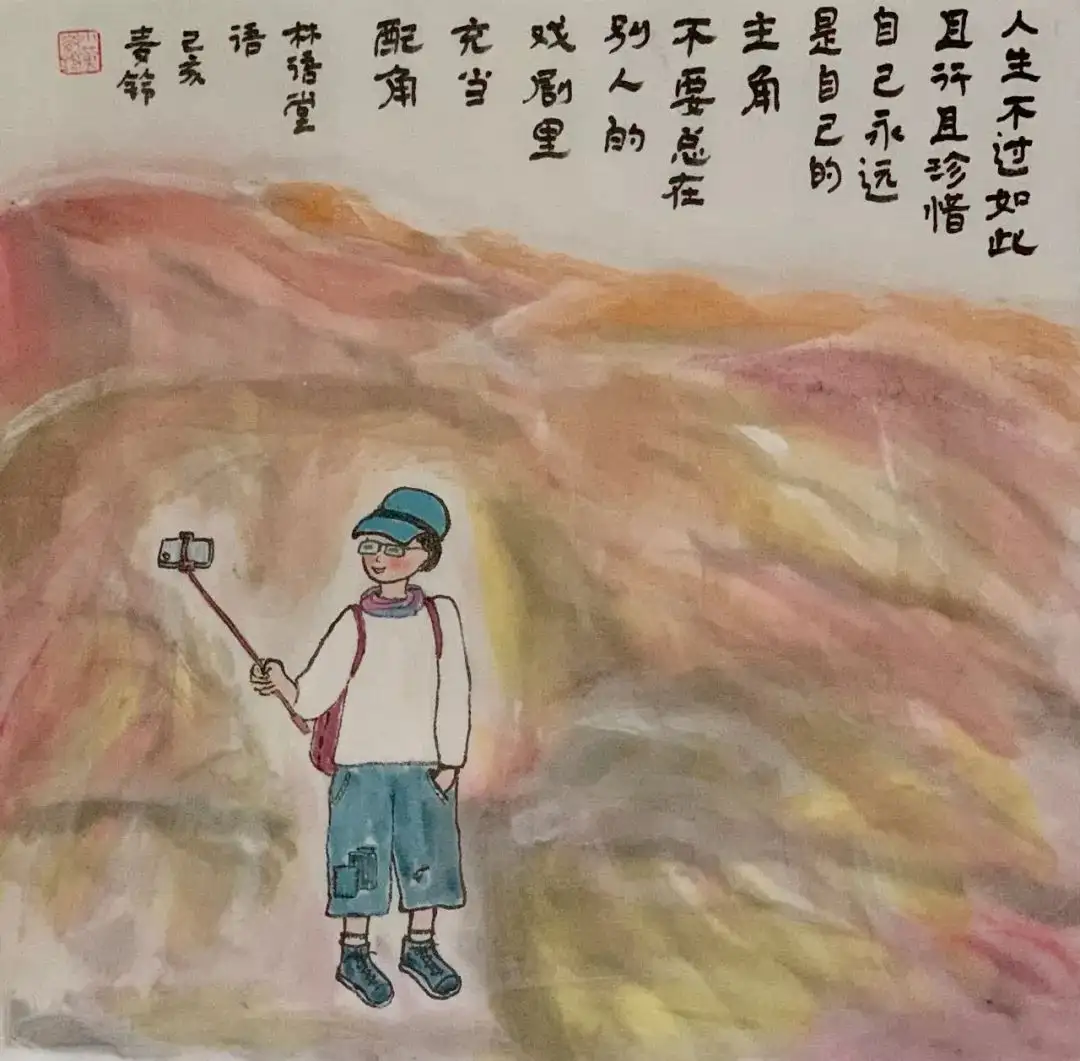 人生不过如此
且行且珍惜
自己永远
是自己的
主角
不要总在
别人的
戏剧里
充当
配角
林语堂
语
己亥
春铃